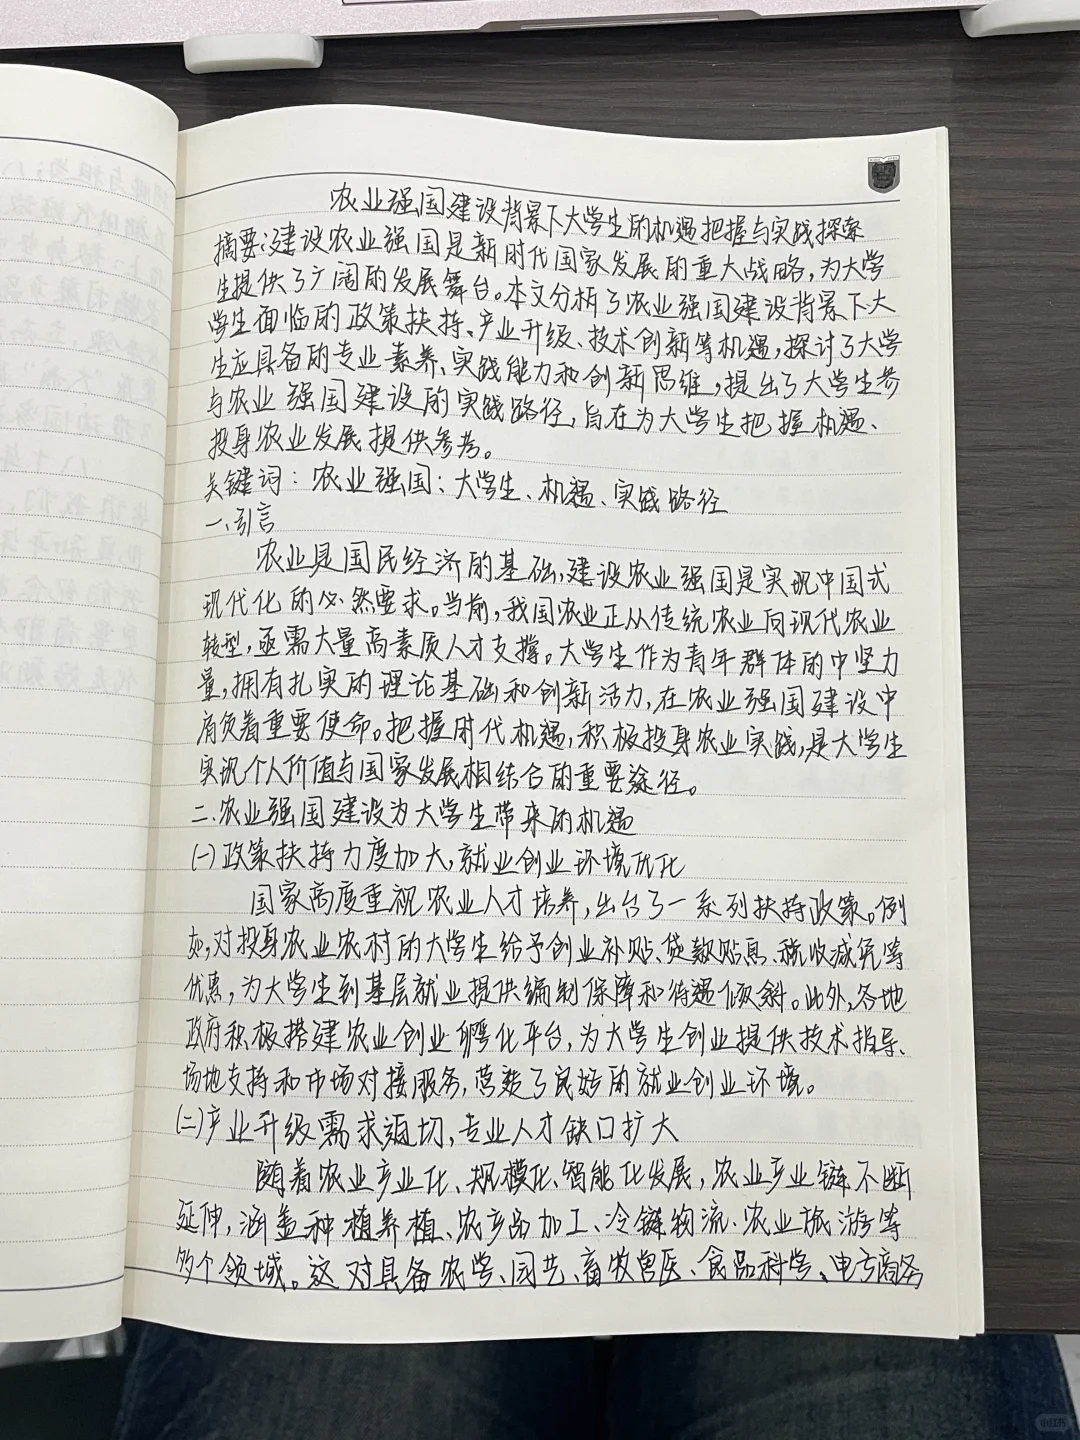 农业强国建设背景下大学生的机遇把握与实践探索
摘要:建设农业强国是新时代国家发展的重大战略,为大学
生提供了广阔的发展舞台。本文分析了农业强国建设背景下大
学生面临的政策扶持、产业升级、技术创新等机遇,探讨了大学
生应具备的专业素养、实践能力和创新思维,提出了大学生参
与农业强国建设的实践路径,旨在为大学生把握机遇、
投身农业发展提供参考。
关键词:农业强国;大学生、机遇、实践路径
一、引言
农业是国民经济的基础,建设农业强国是实现中国式
现代化的必然要求。当前,我国农业正从传统农业向现代农业
转型,亟需大量高素质人才支撑。大学生作为青年群体的中坚力
量,拥有扎实的理论基础和创新活力,在农业强国建设中
肩负着重要使命。把握时代机遇,积极投身农业实践,是大学生
实现个人价值与国家发展相结合的重要途径。
二、农业强国建设为大学生带来的机遇
(一)政策扶持力度加大,就业创业环境优化
国家高度重视农业人才培养,出台了一系列扶持政策。例
如,对投身农业农村的大学生给予创业补贴、贷款贴息、税收减免等
优惠,为大学生到基层就业提供编制保障和待遇倾斜。此外,各地
政府积极搭建农业创业孵化平台,为大学生创业提供技术指导、
场地支持和市场对接服务,营造了良好的就业创业环境。
(二)产业升级需求迫切,专业人才缺口扩大
随着农业产业化、规模化、智能化发展,农业产业链不断
延伸,涵盖种植养殖、农产品加工、冷链物流、农业旅游等
多个领域。这对具备农学、园艺、畜牧兽医、食品科学、电子商务
小红书